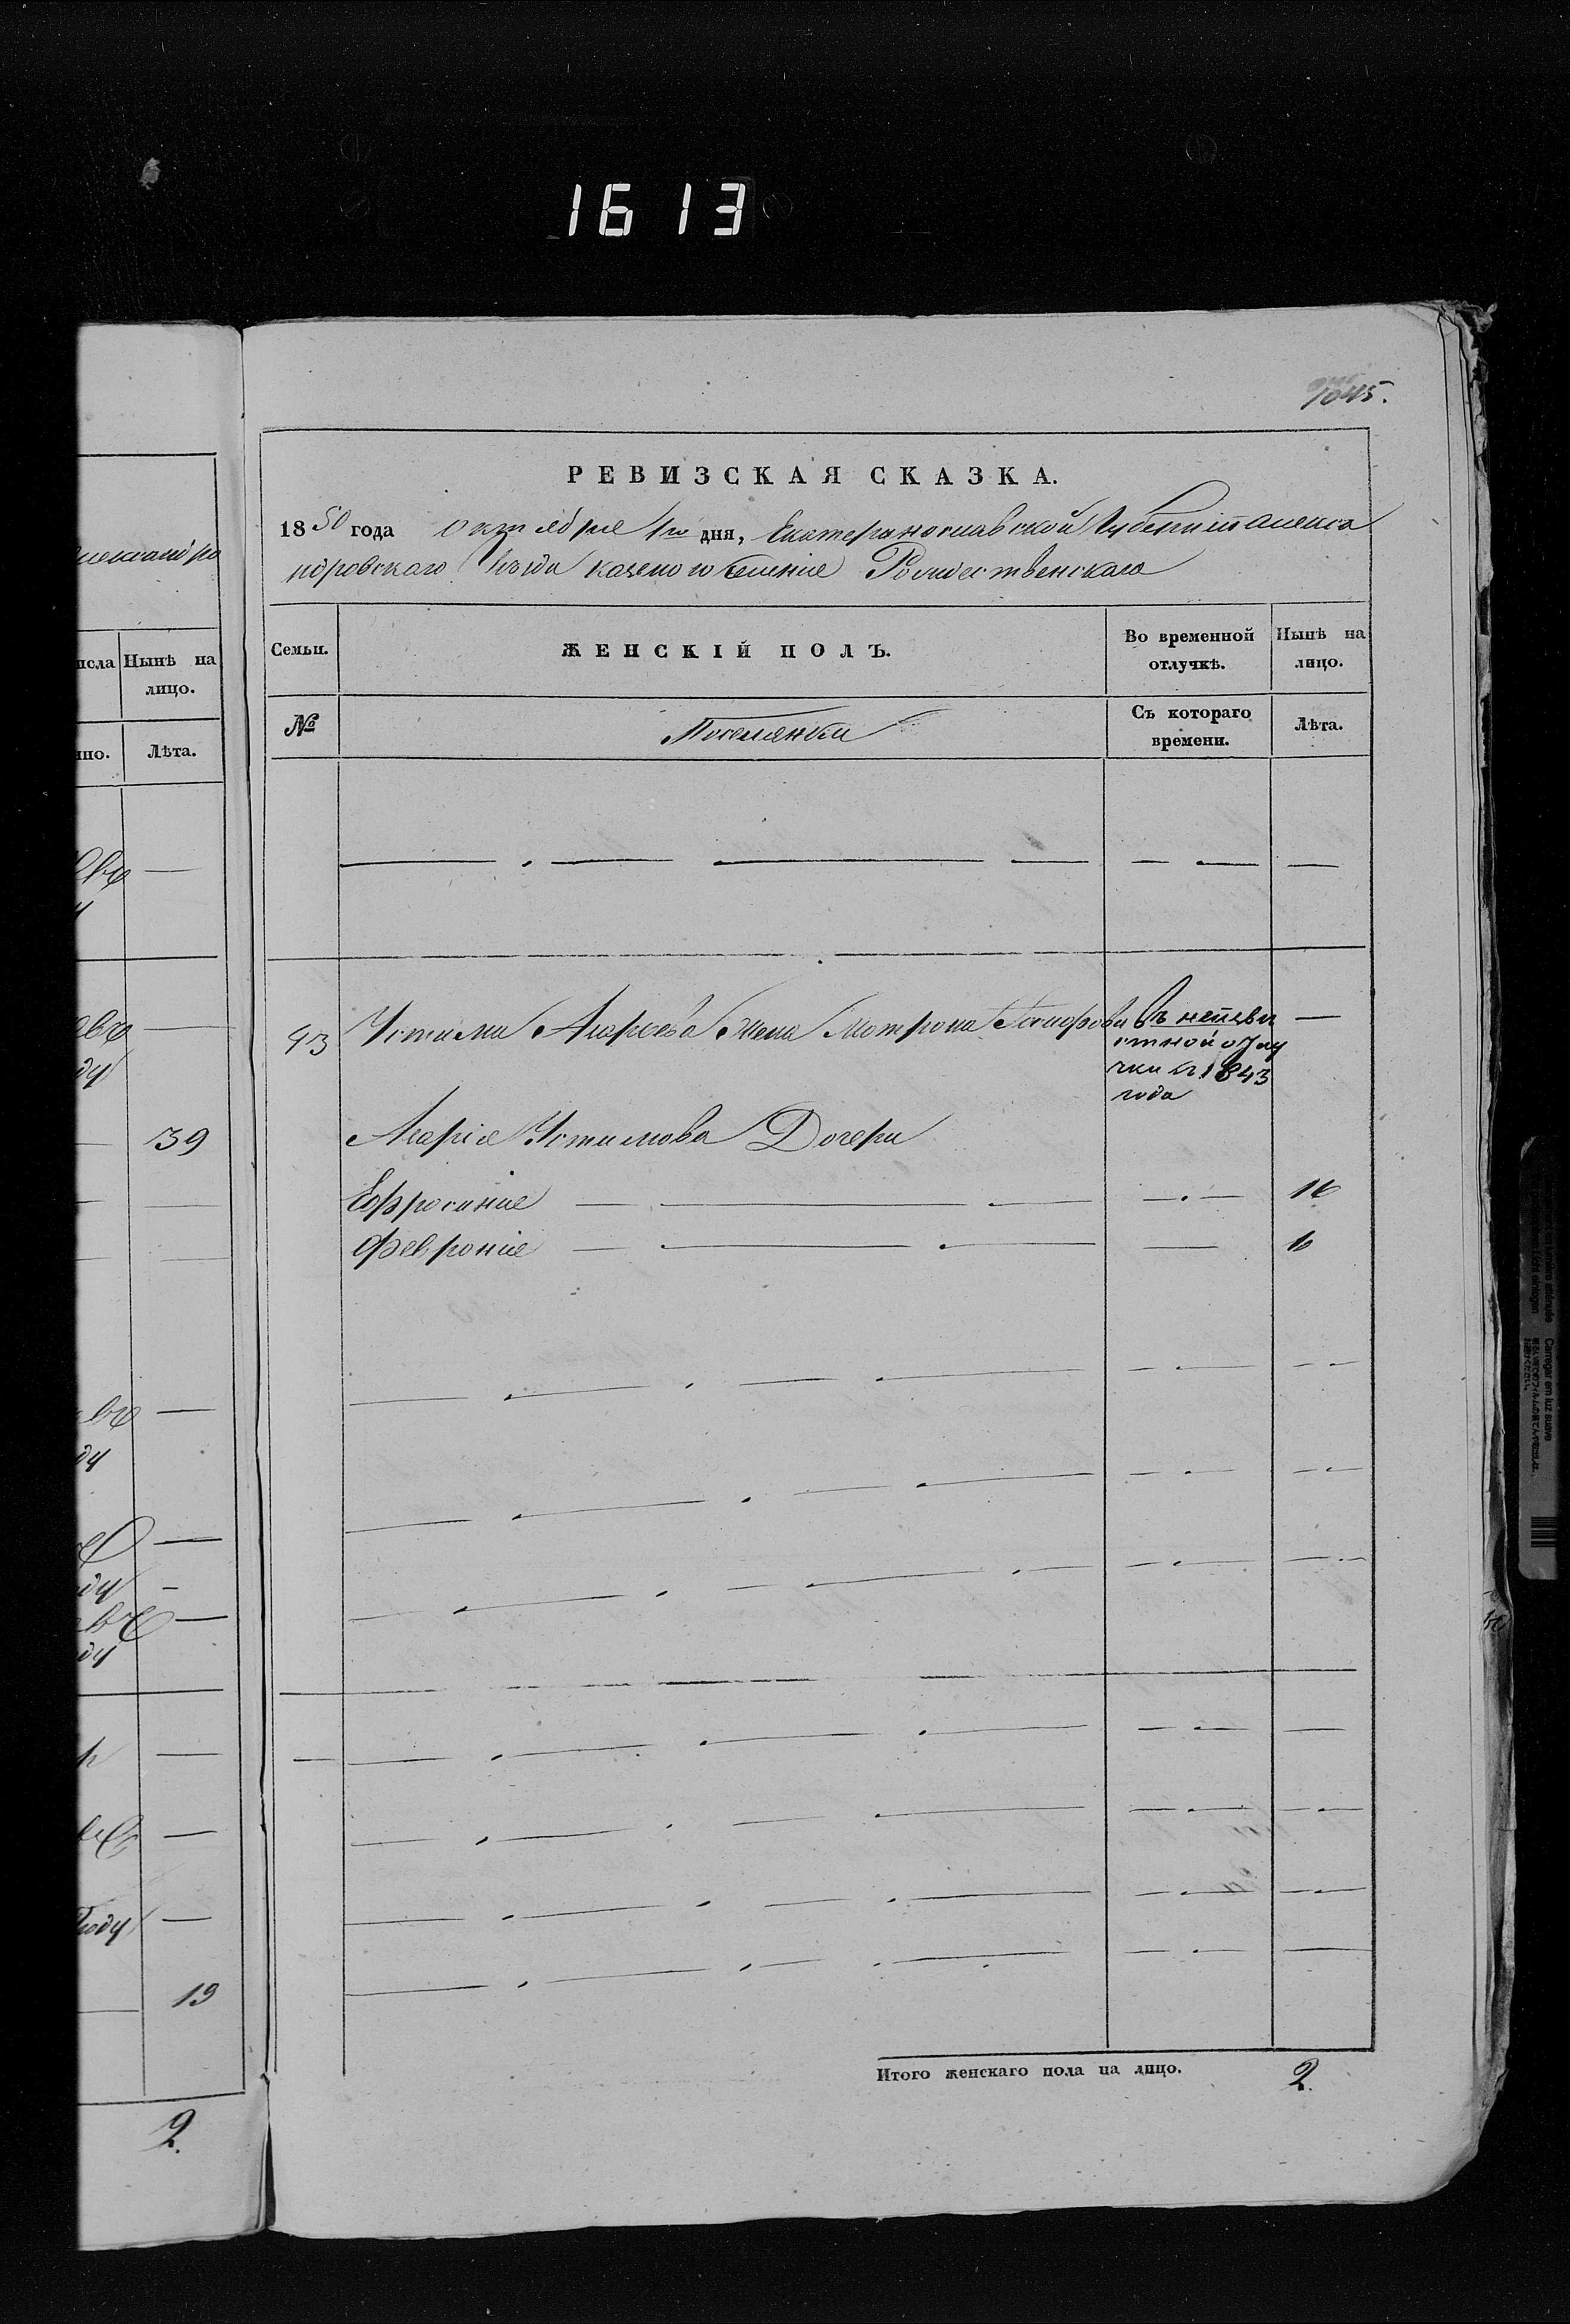 1613
1045.
РЕВИЗСКАЯ СКАЗКА.
1850 года Октября 1го дня, Екатеринославской Губерніи Алекса
ндровского Уезда казеного селенія Рождественскаго
Семьи.
ЖЕНСКІЙ ПОЛЪ.
Во временной отлучкѣ.
Нынѣ на лицо.
№
Поселянки
Съ котораго времени.
Лѣта.
93 Устима жена Мотрона Въ неизве —
стной отлу
чки с 1843
года
Марія Устимова Дочери
Ефросинія 16
Февронія 6
Итого женскаго пола на лицо. 2.
Нынѣ на лицо.
Лѣта.
39
Году
19
2.